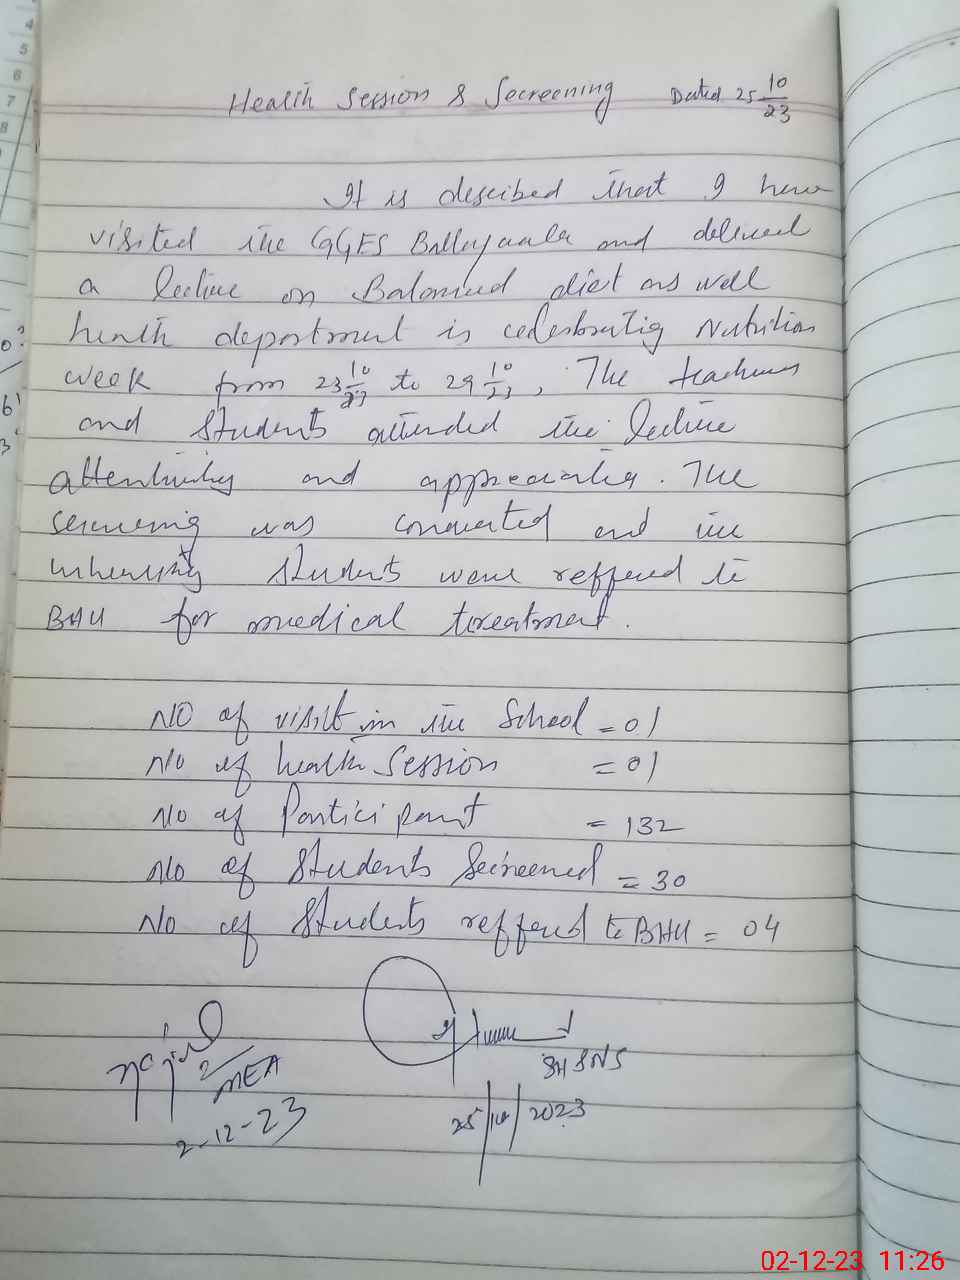 Health Session & Secreening Dated 25 10/23
It is descibed that I have
visited the GGES Balleyaala and delivered
a lecture on Balanced diet as well
health department is celebrating Nutrition
week from 23 10/23 to 29 10/23, The teachers
and Students attended the lecture
attentively and appreciates. The
screening was conducted and the
students were reffered to
BHU for medical treatment.
NO of visit in the School = 01
No of health Session = 01
No of Participant = 132
No of Students Secreened = 30
No of Students reffered to BHU = 04
MEA
2-12-23
SH&NS
25/10/2023
02-12-23 11:26
4
5
6
7
8